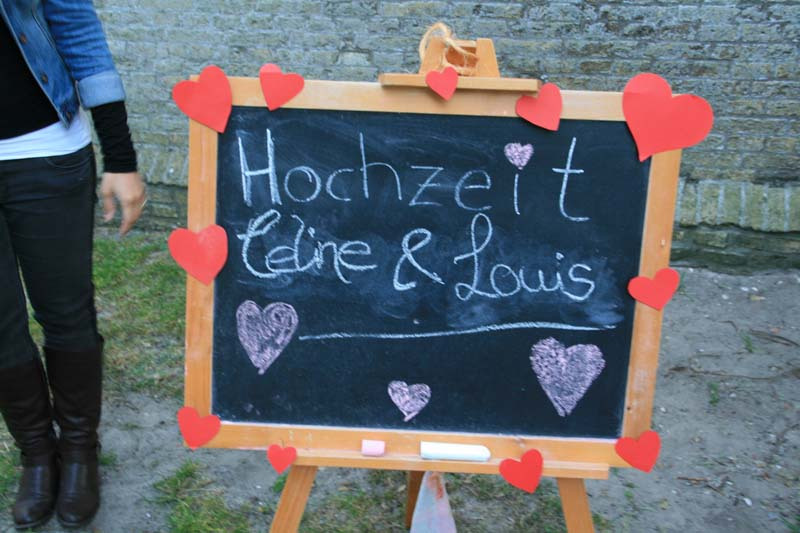 Hochzeit
Celine & Louis